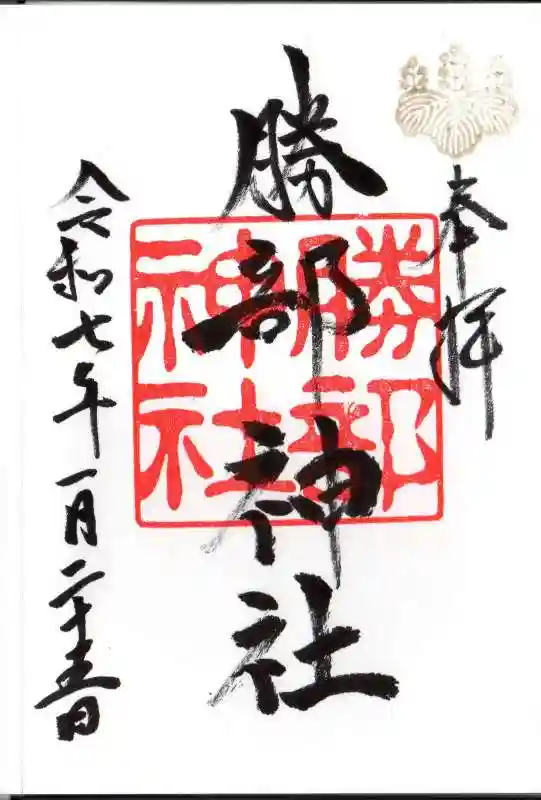 奉拝
勝部神社
勝部神社
令和七年一月二十五日